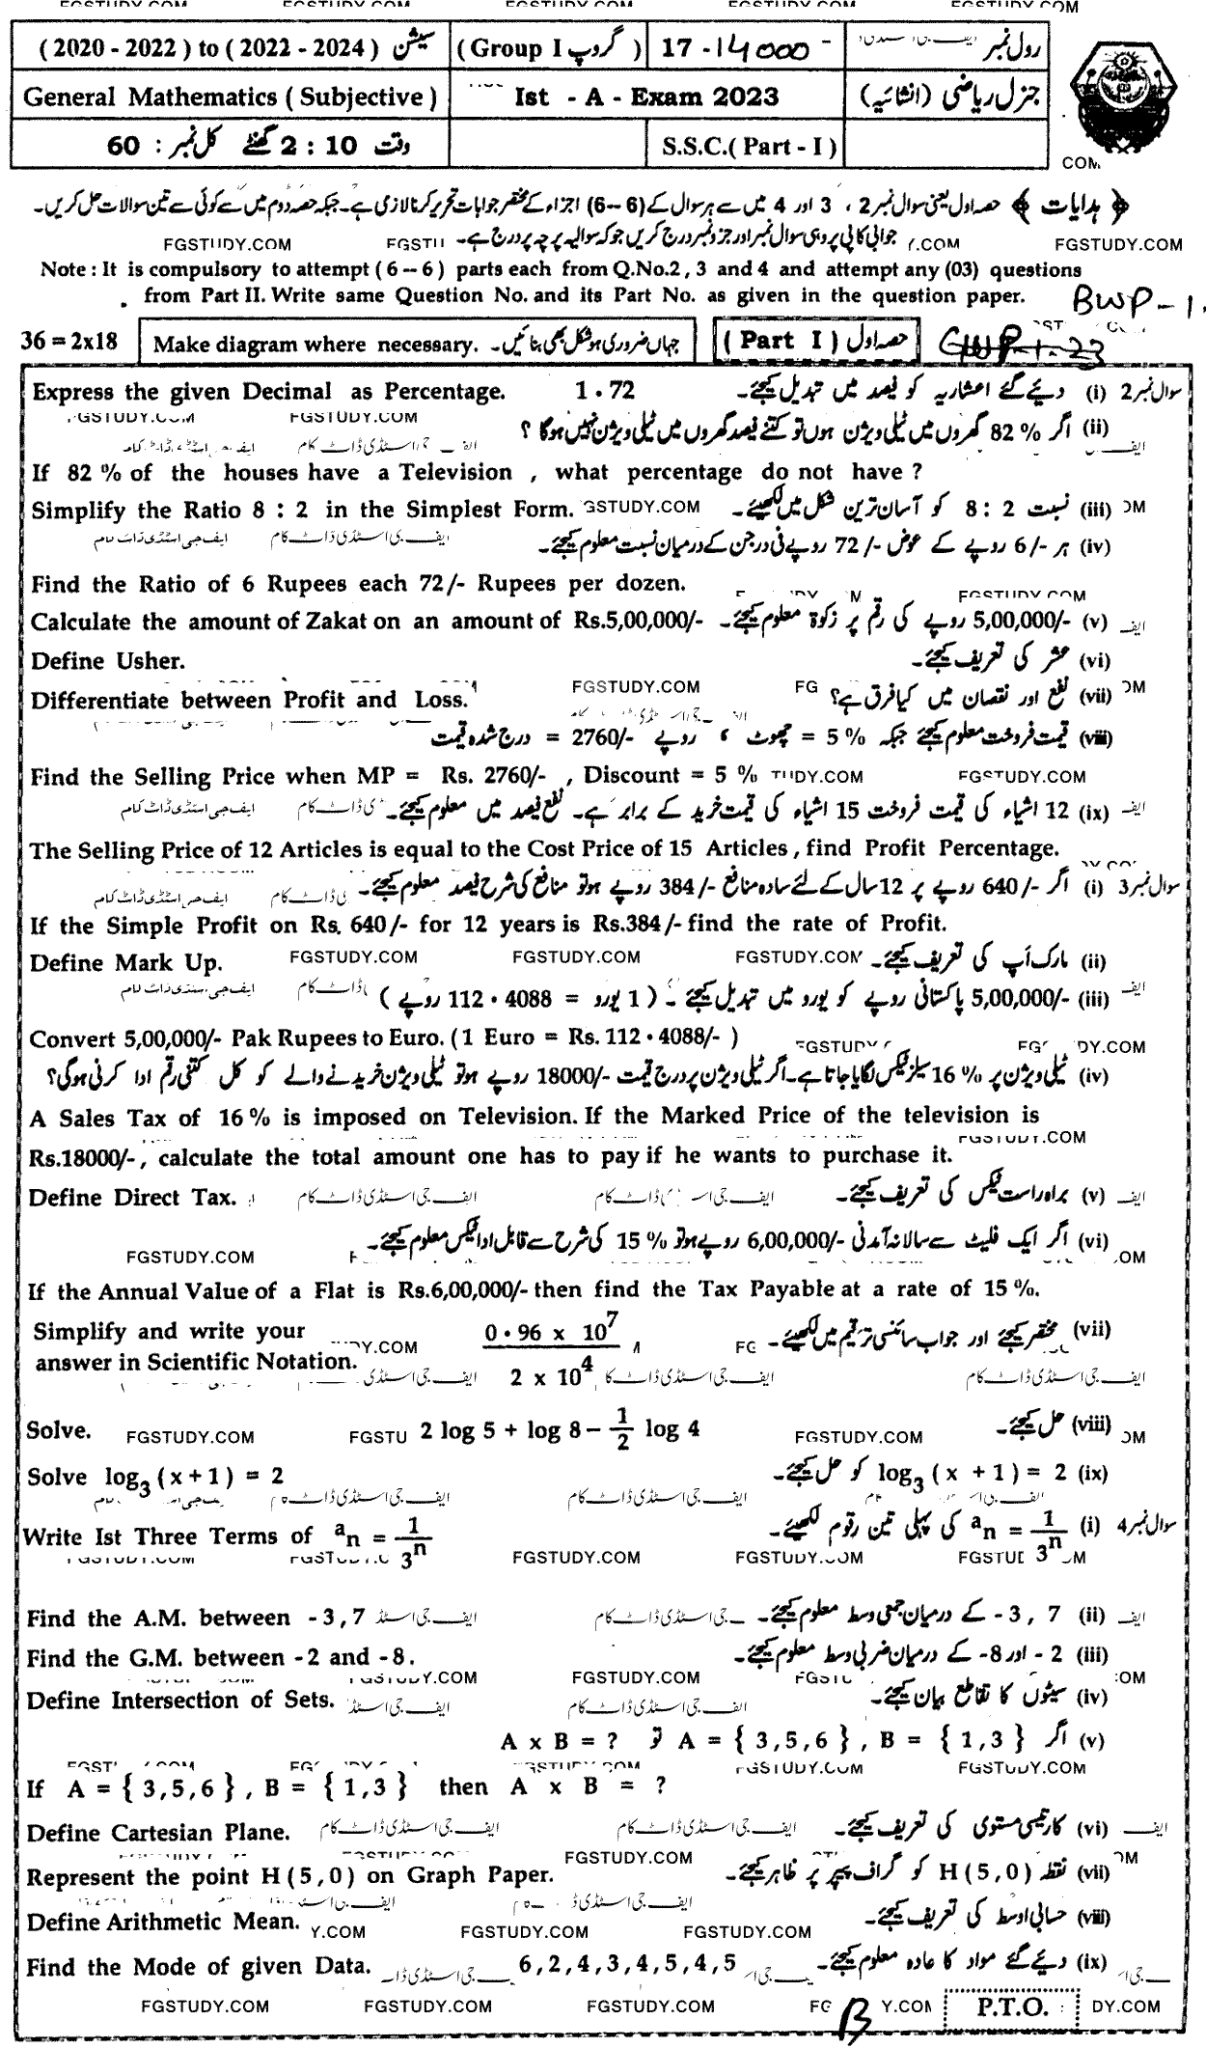 ( 2020 - 2022 ) to ( 2022 - 2024 ) سیشن (Group I گروپ ) 17 -14000- رول نمبر
General Mathematics ( Subjective ) Ist - A - Exam 2023 جنرل ریاضی (انشائیہ)
وقت 2 : 10 گھنٹے کل نمبر : 60 S.S.C.( Part - I )
﴿ ہدایات ﴾ حصہ اول یعنی سوال نمبر 2 ، 3 اور 4 میں سے ہر سوال کے (6 – 6) اجزاء کے مختصر جوابات تحریر کرنا لازمی ہے۔ جبکہ حصہ دوم میں سے کوئی سے تین سوالات حل کریں۔
جوابی کاپی پر وہی سوال نمبر اور جزو نمبر درج کریں جو کہ سوالیہ پرچہ پر درج ہے۔
FGSTUDY.COM FGSTUDY.COM
Note : It is compulsory to attempt ( 6 – 6 ) parts each from Q.No.2 , 3 and 4 and attempt any (03) questions
from Part II. Write same Question No. and its Part No. as given in the question paper. BWP-1
36 = 2x18 Make diagram where necessary. جہاں ضروری ہو شکل بھی بنائیں۔ ( Part I ) حصہ اول
Express the given Decimal as Percentage. 1 . 72 سوال نمبر 2 (i) دیئے گئے اعشاریہ کو فیصد میں تبدیل کیجئے۔
(ii) اگر % 82 گھروں میں ٹیلی ویژن ہوں تو کتنے فیصد گھروں میں ٹیلی ویژن نہیں ہوگا ؟
If 82 % of the houses have a Television , what percentage do not have ?
Simplify the Ratio 8 : 2 in the Simplest Form. (iii) نسبت 2 : 8 کو آسان ترین شکل میں لکھیئے۔
(iv) ہر -/6 روپے کے عوض -/72 روپے فی درجن کے درمیان نسبت معلوم کیجئے۔
Find the Ratio of 6 Rupees each 72/- Rupees per dozen.
Calculate the amount of Zakat on an amount of Rs.5,00,000/- (v) -/5,00,000 روپے کی رقم پر زکوٰۃ معلوم کیجئے۔
Define Usher. (vi) عشر کی تعریف کیجئے۔
Differentiate between Profit and Loss. FGSTUDY.COM (vii) نفع اور نقصان میں کیا فرق ہے؟
(viii) قیمت فروخت معلوم کیجئے جبکہ % 5 = چھوٹ ، روپے -/2760 = درج شدہ قیمت
Find the Selling Price when MP = Rs. 2760/- , Discount = 5 %
(ix) 12 اشیاء کی قیمت فروخت 15 اشیاء کی قیمت خرید کے برابر ہے۔ نفع فیصد میں معلوم کیجئے۔
The Selling Price of 12 Articles is equal to the Cost Price of 15 Articles , find Profit Percentage.
سوال نمبر 3 (i) اگر -/640 روپے پر 12 سال کے لئے سادہ منافع -/384 روپے ہو تو منافع کی شرح فیصد معلوم کیجئے۔
If the Simple Profit on Rs. 640/- for 12 years is Rs.384/- find the rate of Profit.
Define Mark Up. FGSTUDY.COM FGSTUDY.COM FGSTUDY.COM (ii) مارک اَپ کی تعریف کیجئے۔
(iii) -/5,00,000 پاکستانی روپے کو یورو میں تبدیل کیجئے۔ ( 1 یورو = 112 . 4088 روپے )
Convert 5,00,000/- Pak Rupees to Euro. ( 1 Euro = Rs. 112 . 4088/- )
(iv) ٹیلی ویژن پر % 16 سیلز ٹیکس لگایا جاتا ہے۔ اگر ٹیلی ویژن پر درج قیمت -/18000 روپے ہو تو ٹیلی ویژن خریدنے والے کو کل کتنی رقم ادا کرنی ہوگی؟
A Sales Tax of 16 % is imposed on Television. If the Marked Price of the television is
Rs.18000/- , calculate the total amount one has to pay if he wants to purchase it.
Define Direct Tax. (v) براہ راست ٹیکس کی تعریف کیجئے۔
(vi) اگر ایک فلیٹ سے سالانہ آمدنی -/6,00,000 روپے ہو تو % 15 کی شرح سے قابل ادا ٹیکس معلوم کیجئے۔
If the Annual Value of a Flat is Rs.6,00,000/- then find the Tax Payable at a rate of 15 %.
Simplify and write your answer in Scientific Notation. 0 . 96 x 10^7 / 2 x 10^4 (vii) مختصر کیجئے اور جواب سائنسی ترقیم میں لکھیئے۔
Solve. FGSTUDY.COM 2 log 5 + log 8 – 1/2 log 4 FGSTUDY.COM (viii) حل کیجئے۔
Solve log3 ( x + 1 ) = 2 (ix) log3 ( x + 1 ) = 2 کو حل کیجئے۔
Write Ist Three Terms of an = 1/3^n سوال نمبر 4 (i) an = 1/3^n کی پہلی تین رقوم لکھیئے۔
Find the A.M. between -3 , 7 (ii) -3 , 7 کے درمیان جمعی وسط معلوم کیجئے۔
Find the G.M. between -2 and -8 . (iii) -2 اور -8 کے درمیان ضربی وسط معلوم کیجئے۔
Define Intersection of Sets. (iv) سیٹوں کا تقاطع بیان کیجئے۔
(v) اگر A = { 3,5,6 } , B = { 1,3 } تو A x B = ?
If A = { 3,5,6 } , B = { 1,3 } then A x B = ?
Define Cartesian Plane. (vi) کارتیسی مستوی کی تعریف کیجئے۔
Represent the point H ( 5 , 0 ) on Graph Paper. (vii) نقطہ H ( 5 , 0 ) کو گراف پیپر پر ظاہر کیجئے۔
Define Arithmetic Mean. (viii) حسابی اوسط کی تعریف کیجئے۔
Find the Mode of given Data. 6 , 2 , 4 , 3 , 4 , 5 , 4 , 5 (ix) دیئے گئے مواد کا عادہ معلوم کیجئے۔
FGSTUDY.COM FGSTUDY.COM FGSTUDY.COM P.T.O.